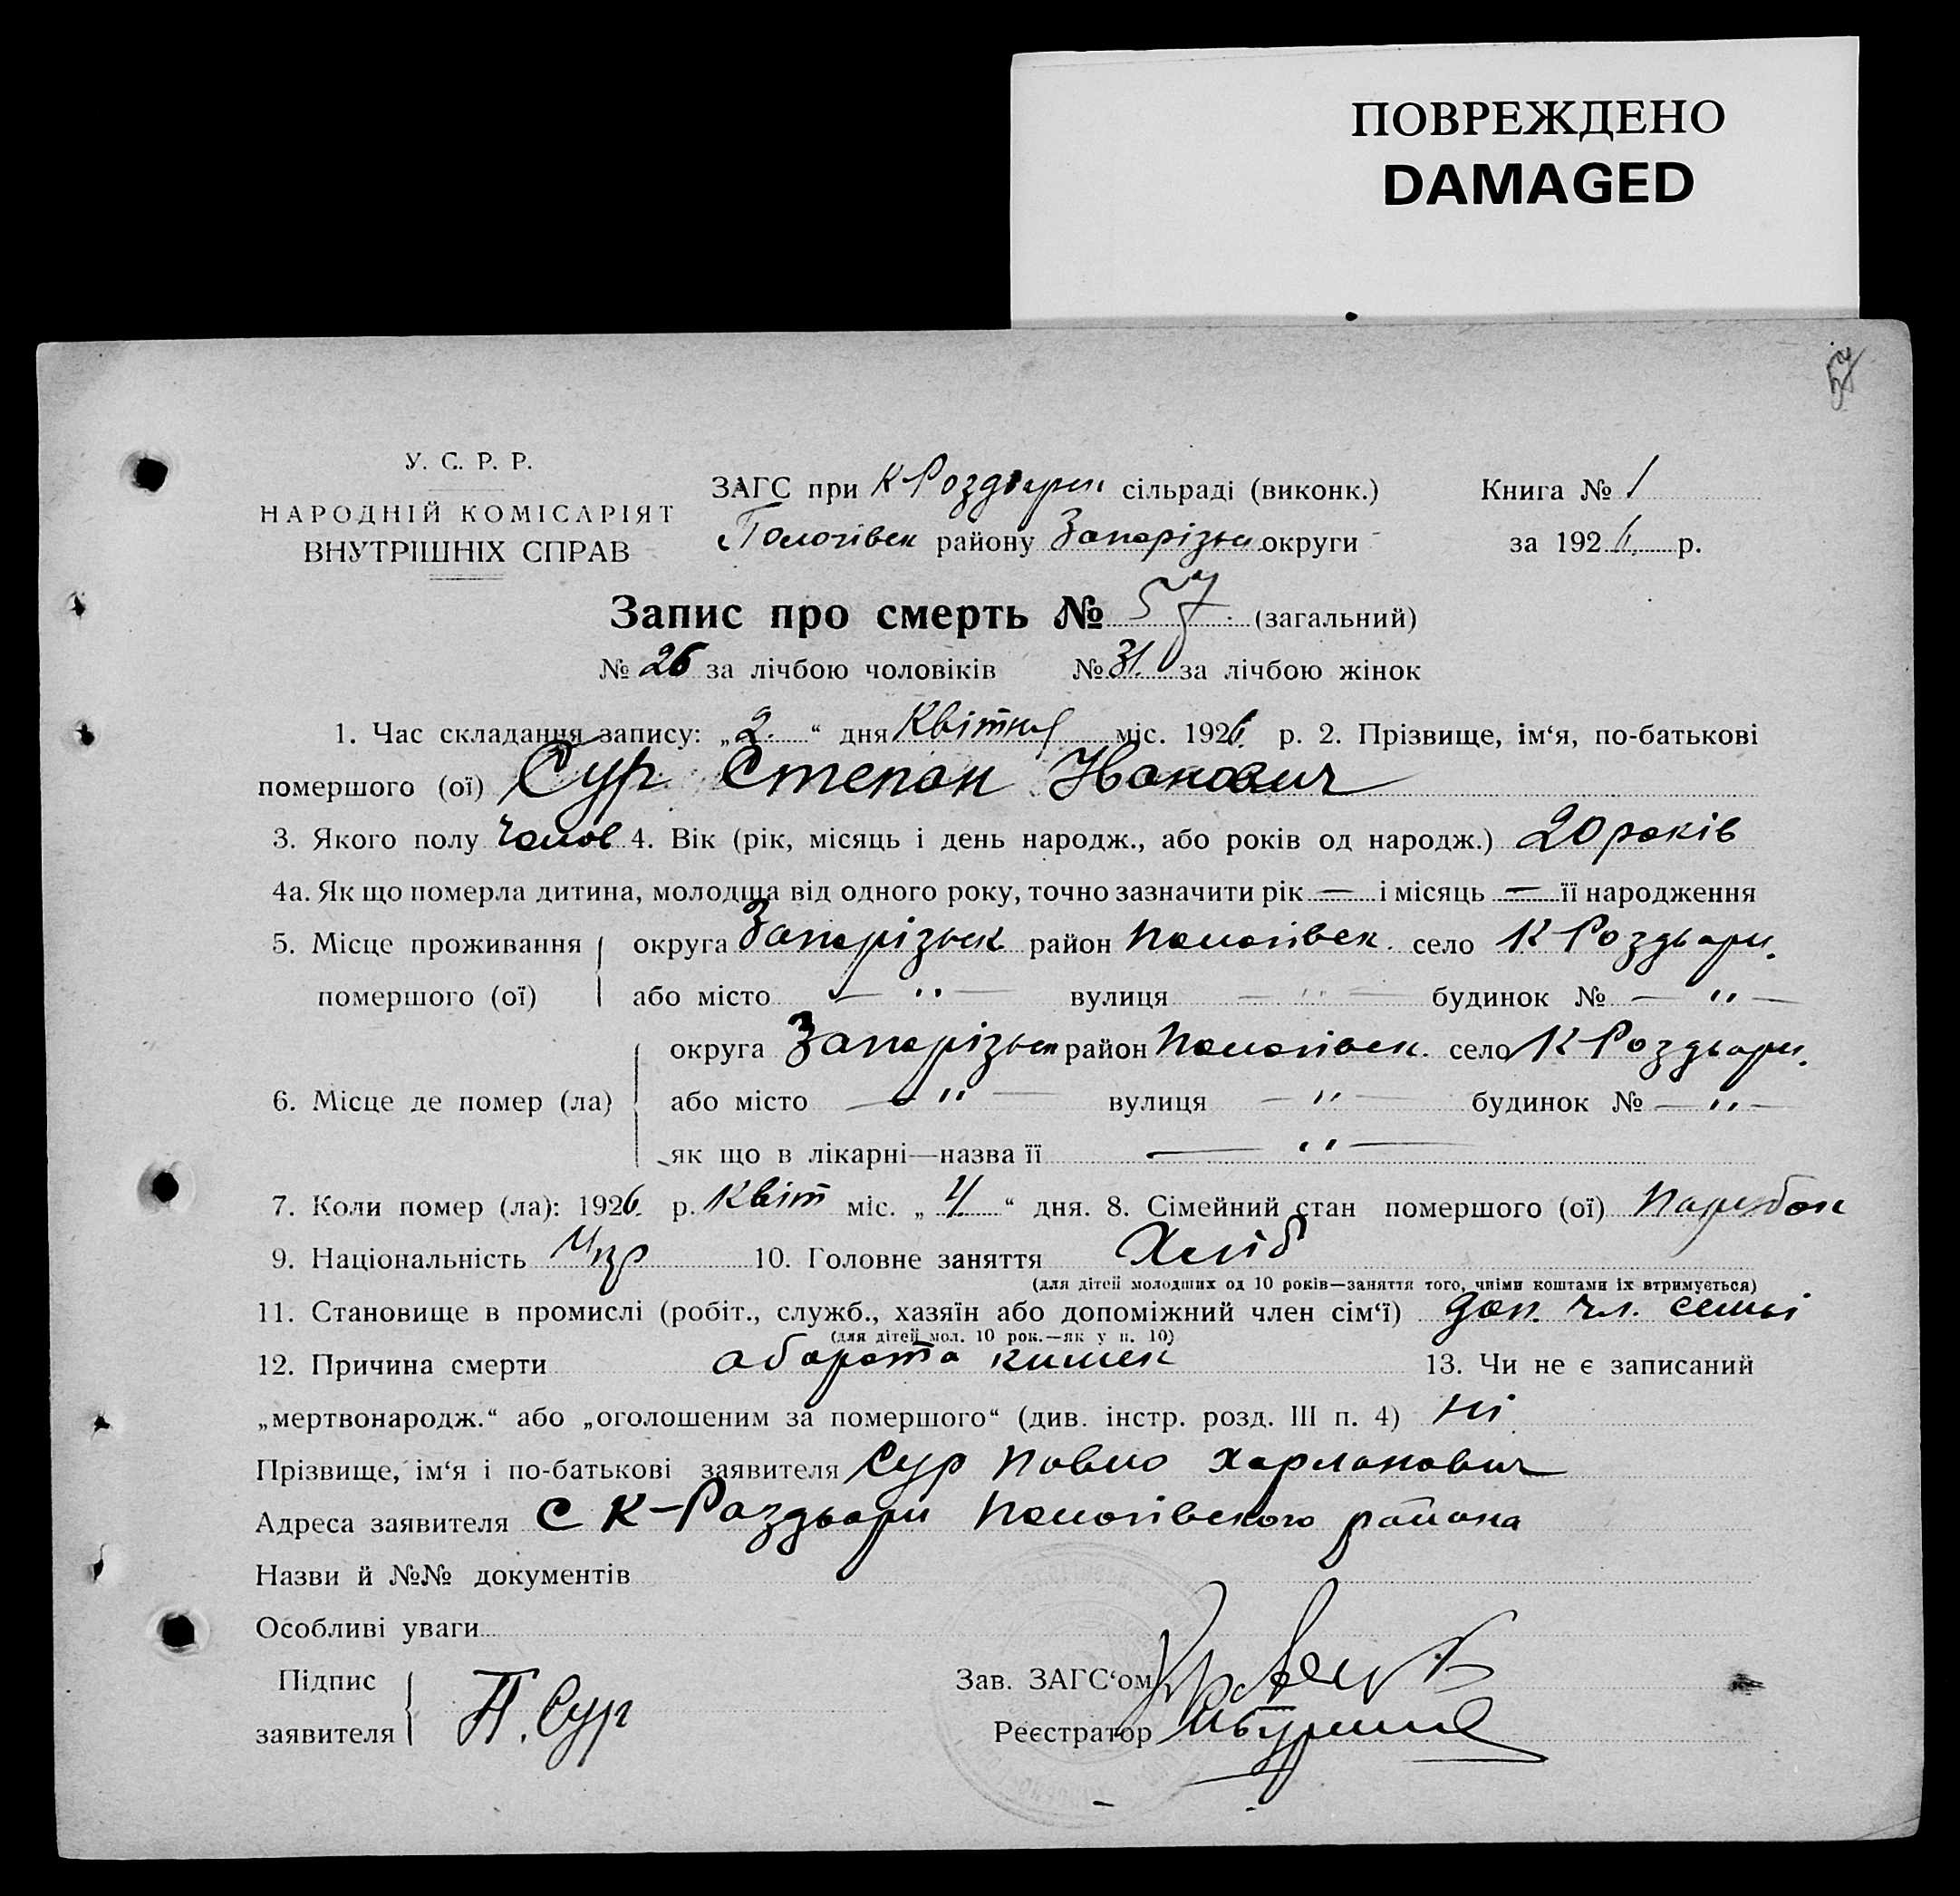 ПОВРЕЖДЕНО
DAMAGED
57
У. С. Р. Р.
НАРОДНІЙ КОМІСАРІЯТ
ВНУТРІШНІХ СПРАВ
ЗАГС при К-Роздорен сільраді (виконк.)
Пологівск району Запорізьк округи
Книга № 1
за 1926 р.
Запис про смерть № 57 (загальний)
№ 26 за лічбою чоловіків № 31. за лічбою жінок
1. Час складання запису: „2.“ дня Квітня міс. 1926. р. 2. Прізвище, ім‘я, по-батькові
помершого (ої) Сур Степан Іванович
3. Якого полу Чолов 4. Вік (рік, місяць і день народж., або років од народж.) 20 років
4а. Як що померла дитина, молодща від одного року, точно зазначити рік — і місяць — її народження
5. Місце проживання помершого (ої)
округа Запорізьск район Пологівск. село К-Роздори.
або місто — „ — вулиця — „ — будинок № — „ —
6. Місце де помер (ла)
округа Запорізьк район Пологівск. село К-Роздори.
або місто — „ — вулиця — „ — будинок № — „ —
як що в лікарні—назва її — „ —
7. Коли помер (ла): 1926. р. Квіт міс. „ “ дня. 8. Сімейний стан помершого (ої) Парубок
9. Національність Укр 10. Головне заняття Хліб
(для дітей молодших од 10 років—заняття того, чиїми коштами їх втримується)
11. Становище в промислі (робіт., служб., хазяїн або допоміжний член сім‘ї) доп. чл. семьі
(для дітей мол. 10 рок.—як у п. 10)
12. Причина смерти оборота кишек 13. Чи не є записаний
„мертвонародж.“ або „оголошеним за помершого“ (див. інстр. розд. III п. 4) Ні
Прізвище, ім‘я і по-батькові заявителя Сур Павло Харланович
Адреса заявителя С К-Раздори Пологівского района
Назви й №№ документів
Особливі уваги
Підпис заявителя П. Сур
Зав. ЗАГС‘ом
Реєстратор